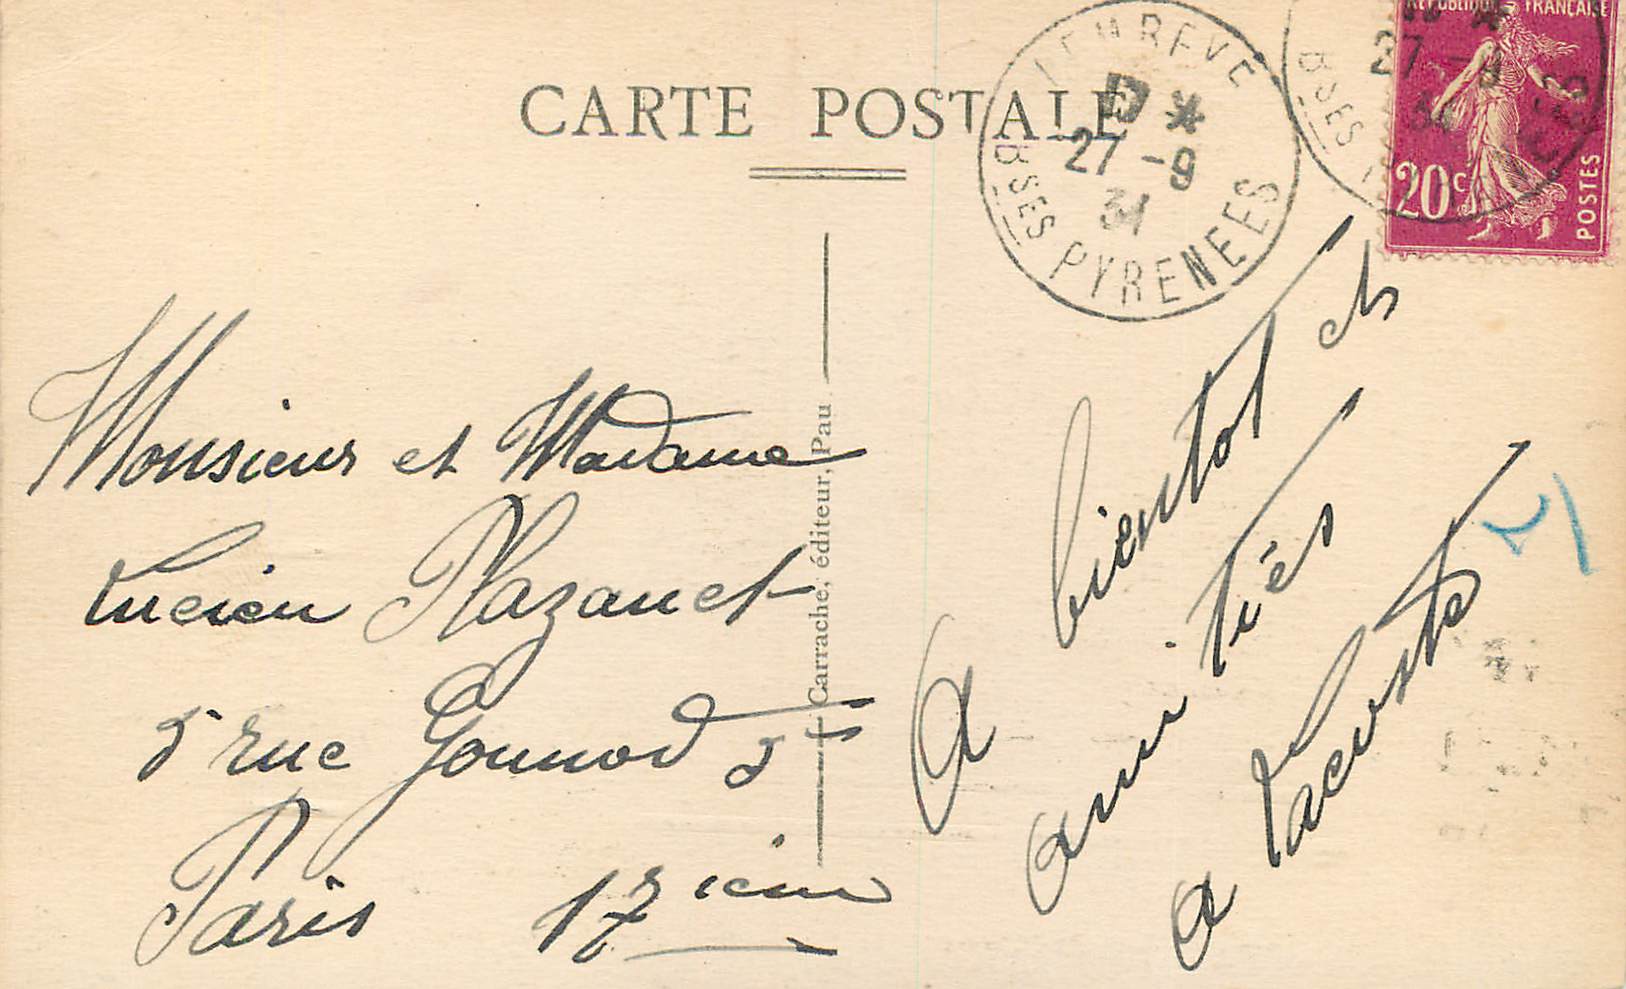 CARTE POSTALE
27 -9
34
BSES PYRENEES
RÉPUBLIQUE FRANÇAISE
27 -9
34
20c
POSTES
Monsieur et Madame
Lucien Plazanet
5 rue Gounod
Paris 17 ieme
Carrache, éditeur, Pau
A bientot et
amitiés
A Lacoste